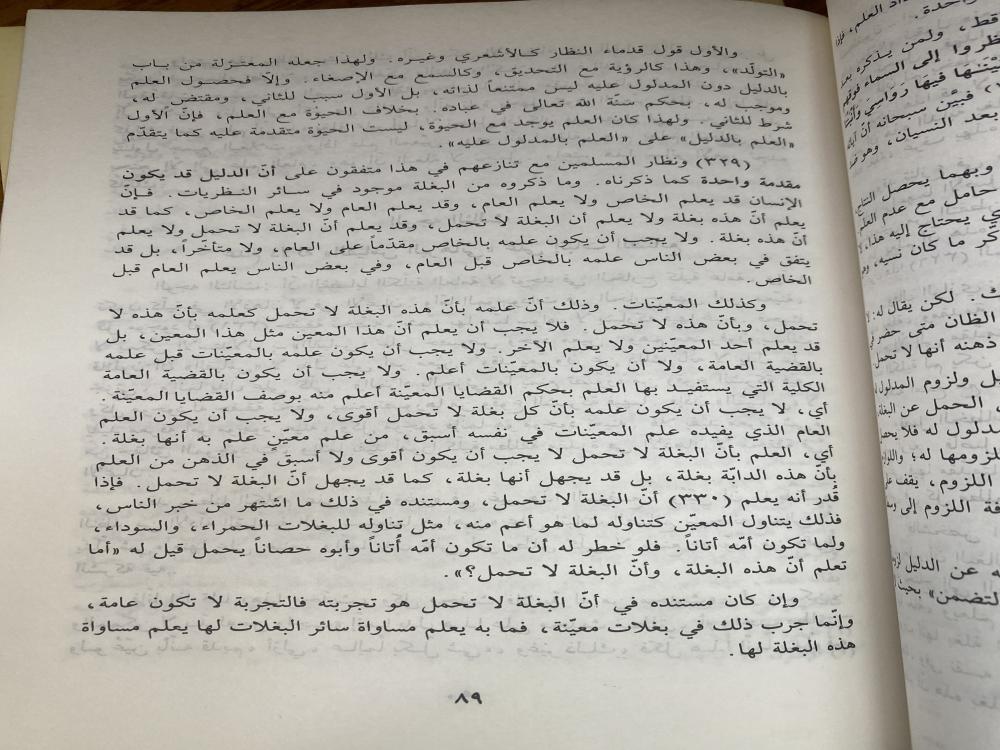 والأول قول قدماء النظار كالأشعري وغيره. ولهذا جعله المعتزلة من باب
«التولّد»، وهذا كالرؤية مع التحديق، وكالسمع مع الإصغاء. وإلاّ فحصول العلم
بالدليل دون المدلول عليه ليس ممتنعاً لذاته، بل الأول سبب للثاني، ومقتضٍ له،
وموجب له، بحكم سنّة الله تعالى في عباده. بخلاف الحيوة مع العلم، فإنّ الأول
شرط للثاني. ولهذا كان العلم يوجد مع الحيوة، ليست الحيوة متقدمة عليه كما يتقدّم
«العلم بالدليل» على «العلم بالمدلول عليه».
(٣٢٩) ونظار المسلمين مع تنازعهم في هذا متفقون على أنّ الدليل قد يكون
مقدمة واحدة كما ذكرناه. وما ذكروه من البغلة موجود في سائر النظريات. فإنّ
الإنسان قد يعلم الخاص ولا يعلم العام، وقد يعلم العام ولا يعلم الخاص، كما قد
يعلم أنّ هذه بغلة ولا يعلم أن البغلة لا تحمل، وقد يعلم أنّ البغلة لا تحمل ولا يعلم
أنّ هذه بغلة. ولا يجب أن يكون علمه بالخاص مقدّماً على العام، ولا متأخراً، بل قد
يتفق في بعض الناس علمه بالخاص قبل العام، وفي بعض الناس يعلم العام قبل
الخاص.
وكذلك المعيّنات. وذلك أنّ علمه بأنّ هذه البغلة لا تحمل كعلمه بأنّ هذه لا
تحمل، وبأنّ هذه لا تحمل. فلا يجب أن يعلم أنّ هذا المعين مثل هذا المعين، بل
قد يعلم أحد المعيّنين ولا يعلم الآخر. ولا يجب أن يكون علمه بالمعيّنات قبل علمه
بالقضية العامة، ولا أن يكون بالمعيّنات أعلم. ولا يجب أن يكون بالقضية العامة
الكلية التي يستفيد بها العلم بحكم القضايا المعيّنة أعلم منه بوصف القضايا المعيّنة.
أي، لا يجب أن يكون علمه بأنّ كل بغلة لا تحمل أقوى، ولا يجب أن يكون العلم
العام الذي يفيده علم المعيّنات في نفسه أسبق، من علم معيّنٍ علم به أنها بغلة.
أي، العلم بأنّ البغلة لا تحمل لا يجب أن يكون أقوى ولا أسبق في الذهن من العلم
بأنّ هذه الدابّة بغلة، بل قد يجهل أنها بغلة، كما قد يجهل أنّ البغلة لا تحمل. فإذا
قُدر أنه يعلم (٣٣٠) أنّ البغلة لا تحمل، ومستنده في ذلك ما اشتهر من خبر الناس،
فذلك يتناول المعيّن كتناوله لما هو أعم منه، مثل تناوله للبغلات الحمراء، والسوداء،
ولما تكون أمّه أتاناً. فلو خطر له أن ما تكون أمّه أُتاناً وأبوه حصاناً يحمل قيل له «أما
تعلم أنّ هذه البغلة، وأنّ البغلة لا تحمل؟».
وإن كان مستنده في أنّ البغلة لا تحمل هو تجربته فالتجربة لا تكون عامة،
وإنّما جرب ذلك في بغلات معيّنة، فما به يعلم مساواة سائر البغلات لها يعلم مساواة
هذه البغلة لها.
٨٩